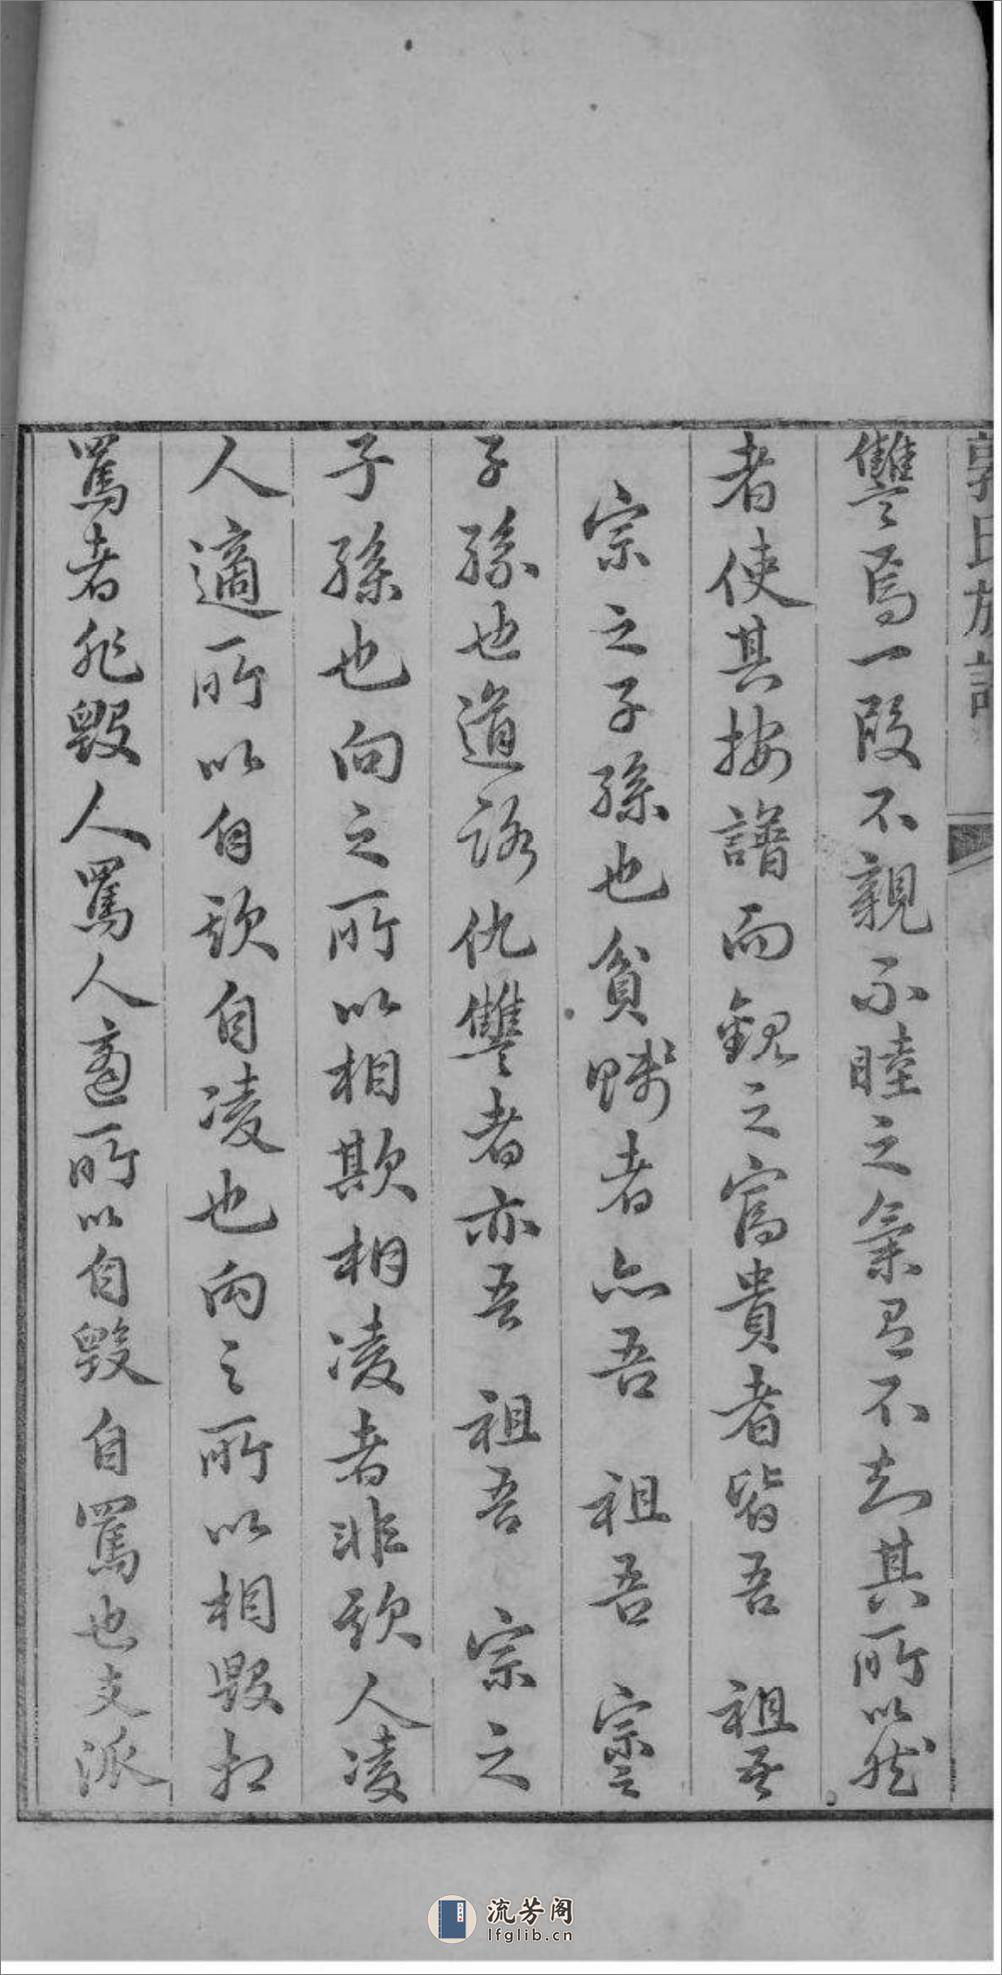 郭氏族譜
讐焉一段不親不睦之氣且不知其所以然
者使其按譜而觀之富貴者皆吾 祖吾
宗之子孫也貧賤者亦吾 祖吾 宗之
子孫也道路仇讐者亦吾 祖吾 宗之
子孫也向之所以相欺相凌者非欺人凌
人適所以自欺自凌也向之所以相毀相
罵者非毀人罵人適所以自毀自罵也支派
流芳阁
lfglib.cn